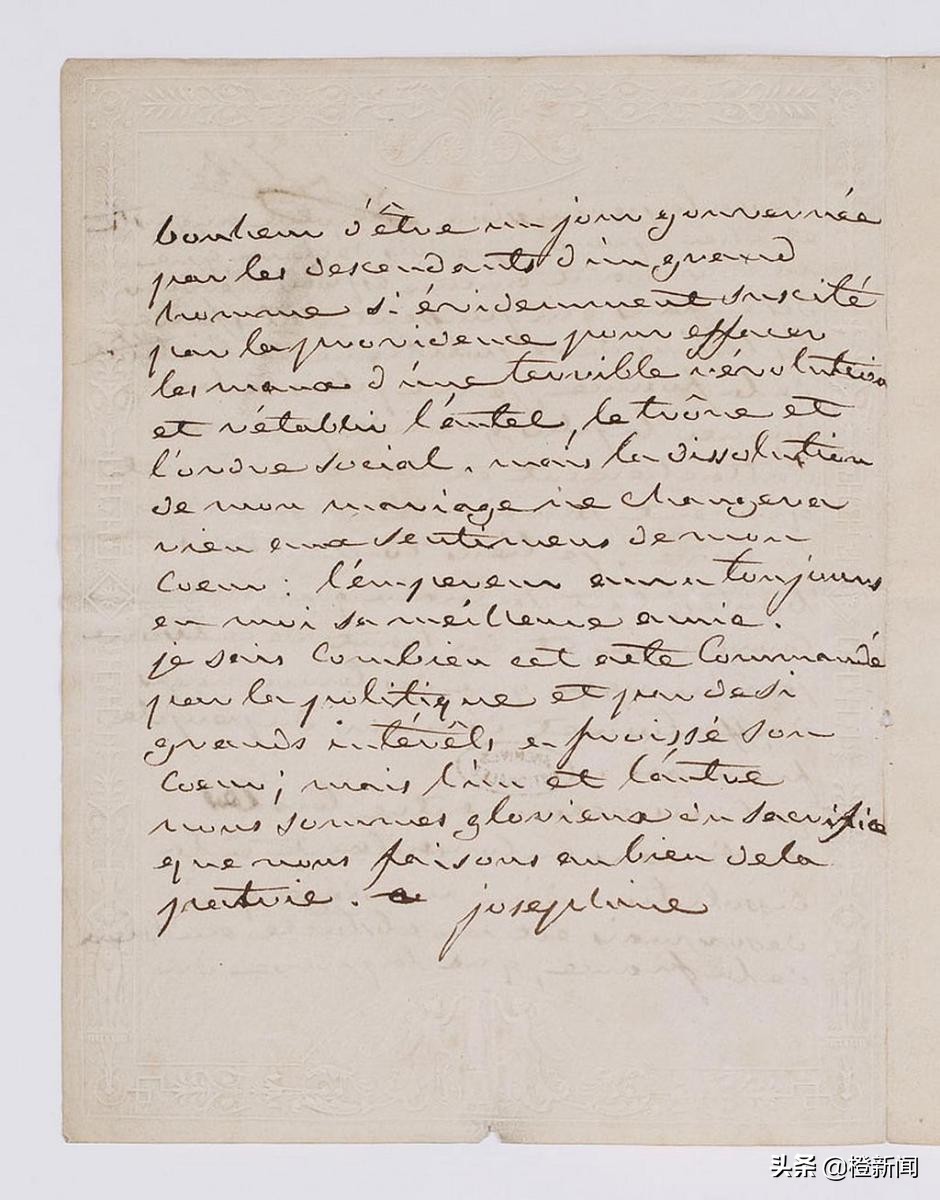 bonheur d'être un jour gouvernée
par les descendants d'un grand
homme si évidemment suscité
par la providence pour effacer
les maux d'une terrible révolution
et rétablir l'autel, le trône et
l'ordre social. mais la dissolution
de mon mariage ne changera
rien aux sentimens de mon
coeur: l'empereur aura toujours
en moi sa meilleure amie.
je sais combien cet acte commandé
par la politique et par de si
grands intérêts a froissé son
coeur; mais l'un et l'autre
nous sommes glorieux du sacrifice
que nous faisons au bien de la
patrie. josephine
头条 @橙新闻